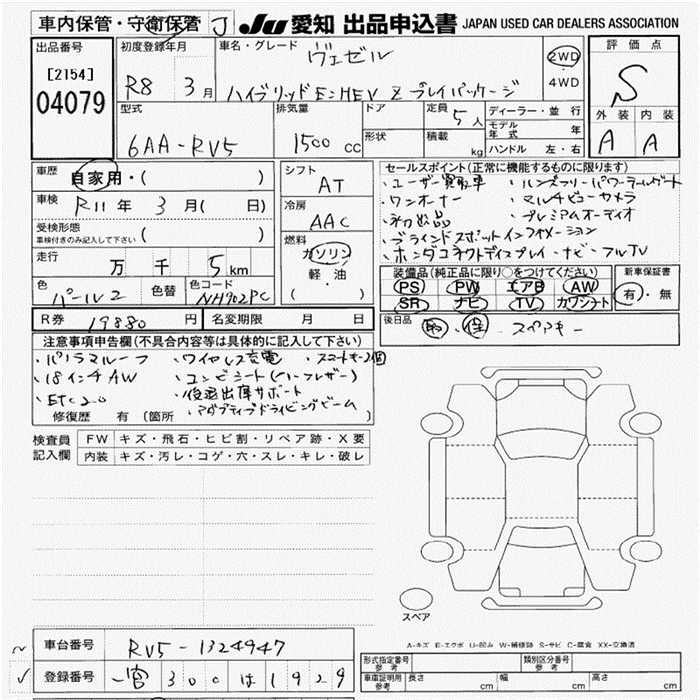 車内保管・守衛保管 J JU 愛知 出品申込書 JAPAN USED CAR DEALERS ASSOCIATION
出品番号 初度登録年月 車名・グレード ヴェゼル 2WD 評価点
[2154] R8 3月 ハイブリッド E:HEV Z プレイパッケージ ・ 4WD S
04079
型式 排気量 ドア 定員 5人 ディーラー・並行 外装 内装
6AA-RV5 1500 CC 形状 積載 kg モデル年式 年 A A
ハンドル 左・右
車歴 自家用・( ) シフト AT セールスポイント(正常に機能するものに限ります)
車検 R11年 3月( 日) 冷房 AAC ・ユーザー買取車 ・ハンズフリーパワーテールゲート
受検形態 ・ワンオーナー ・マルチビューカメラ
車検付きのみ記入して下さい ( ) 燃料 ・禁煙品 ・プレミアムオーディオ
走行 万 千 5 km ガソリン ・ブラインドスポットインフォメーション
軽油 ・ホンダコネクトディスプレイ・ナビ・フルTV
色 パール2 色替 色コード NH902PC ・( ) 装備品(純正品に限り○をつけてください) 新車保証書
PS PW エアB AW 有・無
SR ナビ TV カワシート
R券 19880 円 名変期限 月 日 後日品 スペアキー
注意事項申告欄(不具合内容等は具体的に記入して下さい)
・パノラマルーフ ・ワイヤレス充電 ・スマートキー2個
・18インチAW ・コンビシート(ハーフレザー)
・ETC2.0 ・後退出庫サポート
・アダプティブドライビングビーム
修復歴 有(箇所 )
検査員 FW キズ・飛石・ヒビ割・リペア跡・X要
記入欄 内装 キズ・汚レ・コゲ・穴・スレ・キレ・破レ
スペア
A-キズ E-エクボ U-凹み W-補修跡 S-サビ C-腐食 XX-交換済
車台番号 RV5-1324947
登録番号 一宮 300 は 1929
形式指定番号 参考 類別区分番号 参考
車庫証明用 参考 長さ cm 幅 cm 高さ cm